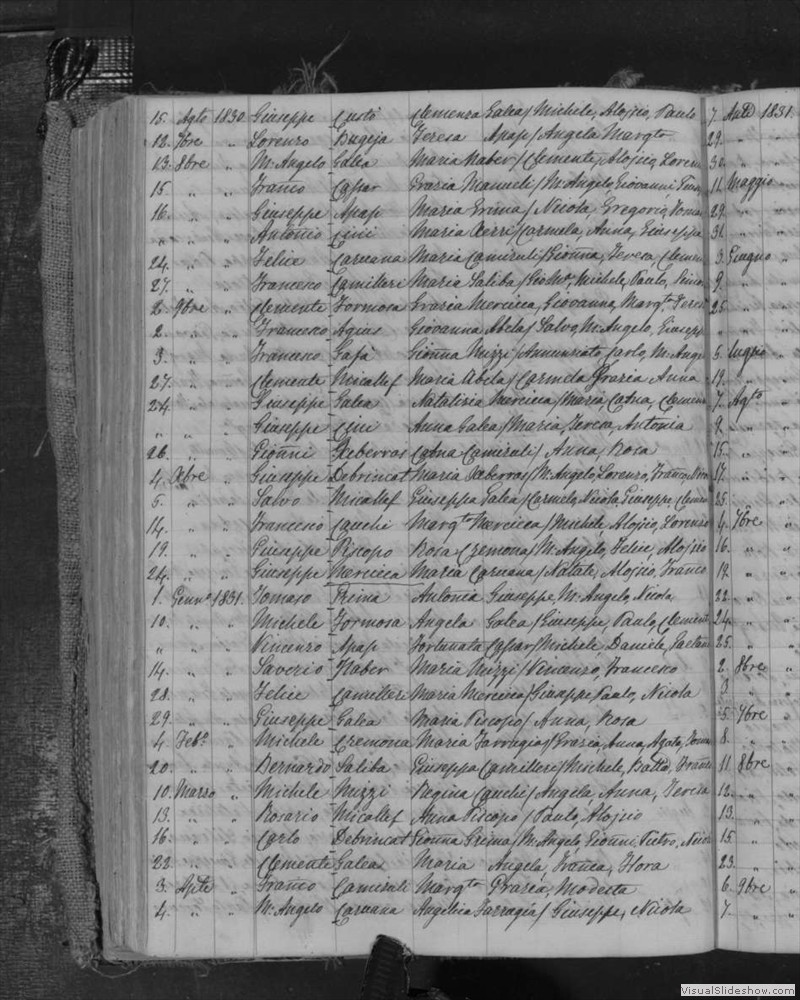 15. Agto 1830. Giuseppe Custò Clemenza Galea / Michele, Aloisio, Paulo 7. Aple 1831.
12. 7bre " Lorenzo Bugeja Teresa Apap / Angela Margta 29. " "
13. 8bre " M. Angelo Galea Maria Xaber / Clemente, Aloisio, Loren 30. " "
15. " " Franco Caspar Grazia / M. Angelo, Giovanni, 11. Maggio "
16. " " Giuseppe Apap Maria Grima / Nicola, Gregorio, Toma 29. " "
" " " Antonio Cini Maria Xerri / Carmela, Anna, Giuseppa 31. " "
24. " " Felice Caruana Maria Camenzuli / Gionna, Teresa, Clemen 3. Giugno "
27. " " Francesco Camilleri Maria Saliba / Michele, Paulo, 9. " "
2. 9bre " Clemente Formosa Grazia Mercieca, Giovanna, Margta, Teresa 25. " "
2. " " Francesco Agius Giovanna Abela / Salvo, M. Angelo, Giusepp " " "
3. " " Francesco Gafà Gionna Mizzi / Annunziata, Carlo, M. Ange 5. Luglio "
27. " " Clemente Micallef Maria Abela / Carmela Grazia Anna 19. " "
24. " " Giuseppe Galea Natalizia Mercieca / Maria, Catna, Clemen 7. Agto "
" " " Giuseppe Cini Anna Galea / Maria, Teresa, Antonia 9. " "
26. " " Gionni Xeberras Catna Camenzuli / Anna, Rosa 15. " "
4. Xbre " Giuseppe Debrincat Maria Xeberras / M. Angelo, Lorenzo, Franco, 17. " "
5. " " Salvo Micallef Giuseppa Galea / Carmelo, Nicola, Giuseppe, 25. " "
14. " " Francesco Cauchi Margta Mercieca / Michele, Aloisio, Lorenzo 4. 7bre "
19. " " Giuseppe Piscopo Rosa Cremona / M. Angelo, Felice, Aloisio 16. " "
24. " " Giuseppe Mercieca Maria Caruana / Natale, Aloisio, Franco 19. " "
1. Genno 1831. Tomaso Grima Antonia Giuseppe, M. Angelo, Nicola 22. " "
10. " " Michele Formosa Angela Galea / Giuseppe, Paulo, Clement 24. " "
" " " Vincenzo Apap Fortunata Caspar / Michele, Daniele, Gaetano 25. " "
14. " " Saverio Xaber Maria Mizzi / Vincenzo, Francesco 2. 8bre "
28. " " Felice Camilleri Maria Mercieca / Giuseppe, Paulo, Nicola 3. " "
29. " " Giuseppe Galea Maria Piscopo / Anna, Rosa 5. 7bre "
4. Febo " Michele Cremona Maria Farrugia / Grazia, Anna, Agata, 8. " "
20. " " Bernardo Saliba Giuseppa Camilleri / Michele, Batta, Franco 11. 8bre "
10. Marzo " Michele Mizzi Regina Cauchi / Angela Anna, Teresa 12. " "
13. " " Rosario Micallef Anna Piscopo / Paulo, Aloisio 13. " "
16. " " Carlo Debrincat Gionna Grima / M. Angelo, Gionni, Pietro, 15. " "
22. " " Clemente Galea Maria Angela, Franca, Flora 23. " "
3. Aple " Franco Camenzuli Margta Grazia, Modesta 6. 9bre "
4. " " M. Angelo Caruana Angelica Farrugia / Giuseppe, Nicola 7. " "
VisualSlideshow.com